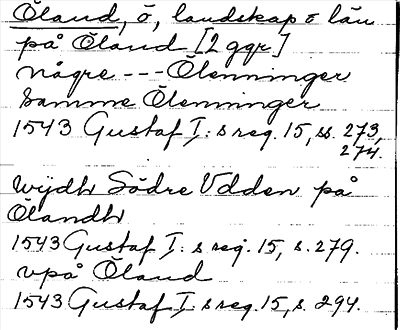 Öland, ö, landskap o län
på Öland [2 ggr]
någre --- Ölenninger
Samme Ölenninger
1543 Gustaf I: s reg. 15, ss. 273,
274.
wijdh Södre Vdden på
Ölandh
1543 Gustaf I: s reg. 15, s. 279.
vpå Öland
1543 Gustaf I: s reg. 15, s. 294.